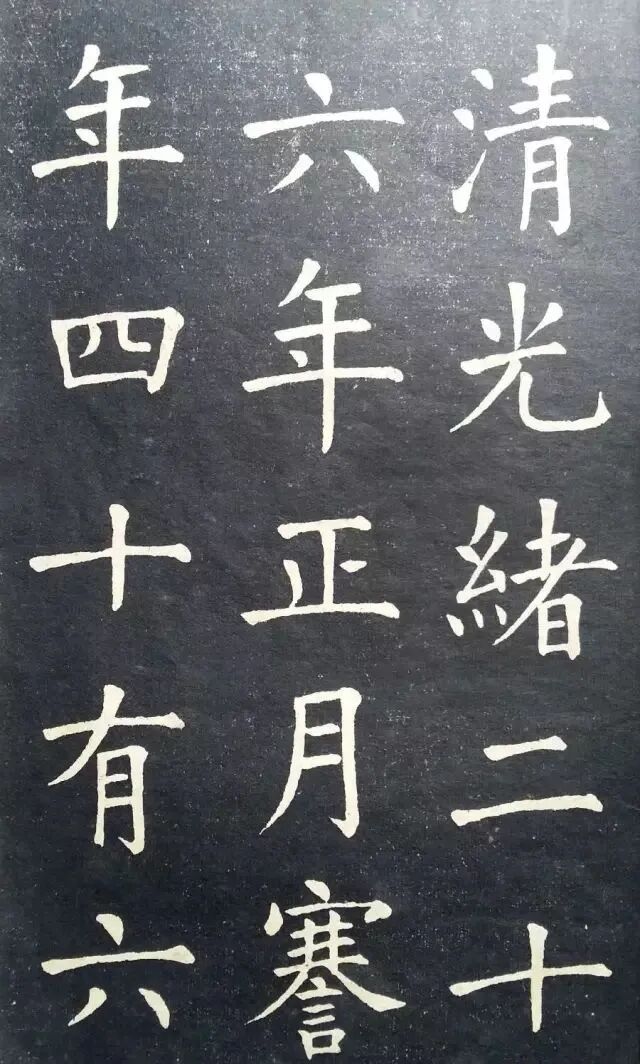 清光緒二十
六年正月謇
年四十有六